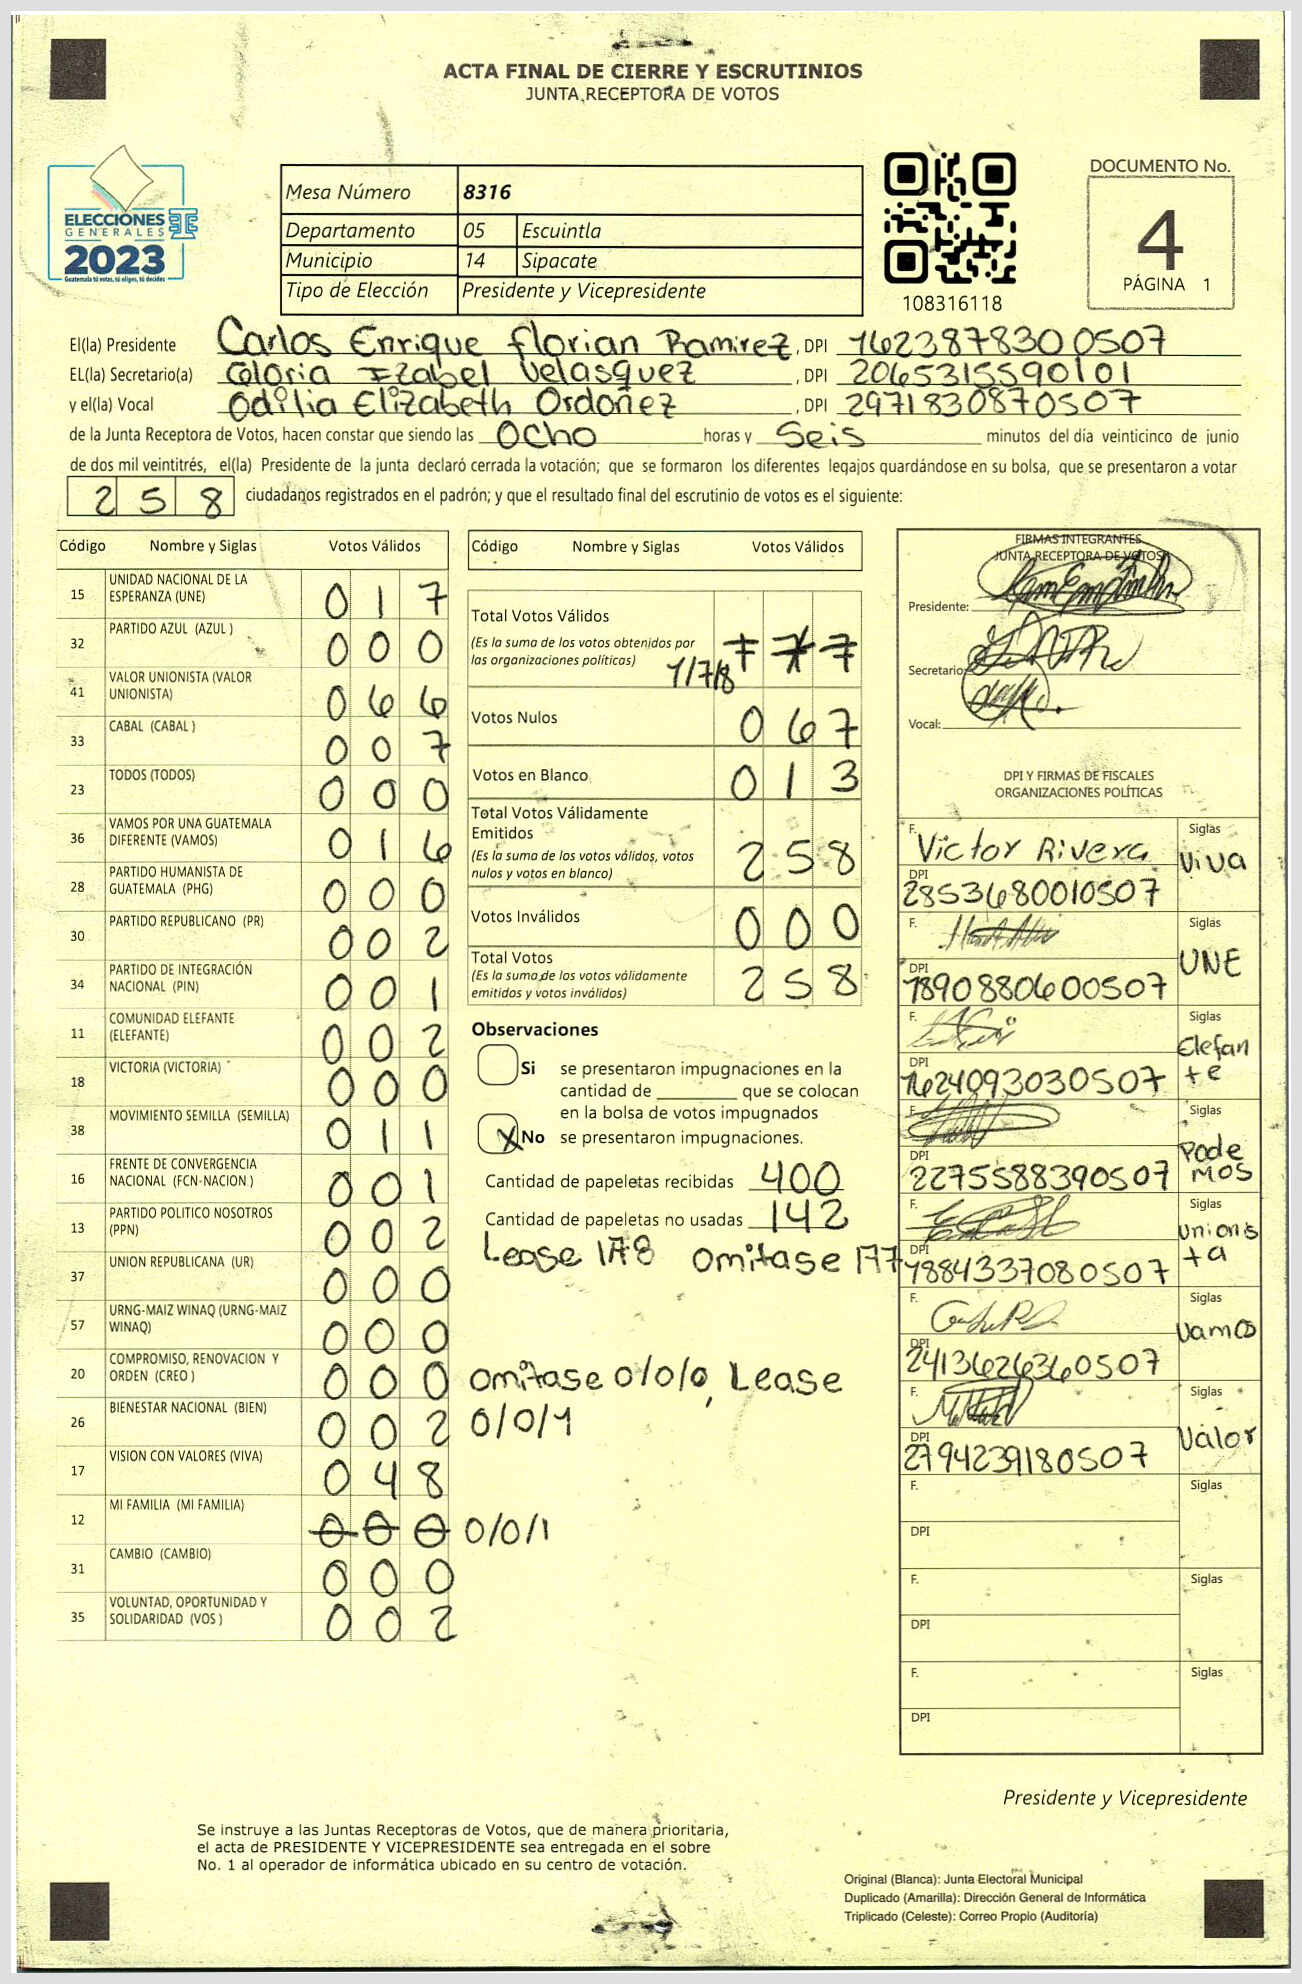 ACTA FINAL DE CIERRE Y ESCRUTINIOS
JUNTA RECEPTORA DE VOTOS
ELECCIONES
GENERALES
2023
Guatemala tú votas, tú eliges, tú decides
Mesa Número 8316
Departamento 05 Escuintla
Municipio 14 Sipacate
Tipo de Elección Presidente y Vicepresidente
108316118
DOCUMENTO No.
4
PÁGINA 1
El(la) Presidente Carlos Enrique florian Ramirez, DPI 1623878300507
EL(la) Secretario(a) Gloria Izabel Velasquez, DPI 2065315590101
y el(la) Vocal Odilia Elizabeth Ordoñez, DPI 2971830870507
de la Junta Receptora de Votos, hacen constar que siendo las Ocho horas y Seis minutos del día veinticinco de junio
de dos mil veintitrés, el(la) Presidente de la junta declaró cerrada la votación; que se formaron los diferentes legajos quardándose en su bolsa, que se presentaron a votar
258 ciudadanos registrados en el padrón; y que el resultado final del escrutinio de votos es el siguiente:
Código Nombre y Siglas Votos Válidos
15 UNIDAD NACIONAL DE LA ESPERANZA (UNE) 0 1 7
32 PARTIDO AZUL (AZUL ) 0 0 0
41 VALOR UNIONISTA (VALOR UNIONISTA) 0 6 6
33 CABAL (CABAL ) 0 0 7
23 TODOS (TODOS) 0 0 0
36 VAMOS POR UNA GUATEMALA DIFERENTE (VAMOS) 0 1 6
28 PARTIDO HUMANISTA DE GUATEMALA (PHG) 0 0 0
30 PARTIDO REPUBLICANO (PR) 0 0 2
34 PARTIDO DE INTEGRACIÓN NACIONAL (PIN) 0 0 1
11 COMUNIDAD ELEFANTE (ELEFANTE) 0 0 2
18 VICTORIA (VICTORIA) 0 0 0
38 MOVIMIENTO SEMILLA (SEMILLA) 0 1 1
16 FRENTE DE CONVERGENCIA NACIONAL (FCN-NACION ) 0 0 1
13 PARTIDO POLITICO NOSOTROS (PPN) 0 0 2
37 UNION REPUBLICANA (UR) 0 0 0
57 URNG-MAIZ WINAQ (URNG-MAIZ WINAQ) 0 0 0
20 COMPROMISO, RENOVACION Y ORDEN (CREO ) 0 0 0
26 BIENESTAR NACIONAL (BIEN) 0 0 2
17 VISION CON VALORES (VIVA) 0 4 8
12 MI FAMILIA (MI FAMILIA) 0 0 0 0/0/1
31 CAMBIO (CAMBIO) 0 0 0
35 VOLUNTAD, OPORTUNIDAD Y SOLIDARIDAD (VOS ) 0 0 2
Código Nombre y Siglas Votos Válidos
Total Votos Válidos
(Es la suma de los votos obtenidos por
las organizaciones políticas) 1/7/8
Votos Nulos 0 6 7
Votos en Blanco 0 1 3
Total Votos Válidamente
Emitidos
(Es la suma de los votos válidos, votos
nulos y votos en blanco) 2 5 8
Votos Inválidos 0 0 0
Total Votos
(Es la suma de los votos válidamente
emitidos y votos inválidos) 2 5 8
Observaciones
Si se presentaron impugnaciones en la
cantidad de ________ que se colocan
en la bolsa de votos impugnados
X No se presentaron impugnaciones.
Cantidad de papeletas recibidas 400
Cantidad de papeletas no usadas 142
Lease 178 Omitase 177
Omitase 0/0/0, Lease
0/0/1
FIRMAS INTEGRANTES
JUNTA RECEPTORA DE VOTOS
Presidente:
Secretario:
Vocal:
DPI Y FIRMAS DE FISCALES
ORGANIZACIONES POLÍTICAS
F. Victor Rivera Siglas Viva
DPI 2853680010507
F. Siglas UNE
DPI 1890880600507
F. Siglas Elefante
DPI 1624093030507
F. Siglas Podemos
DPI 2275588390507
F. Siglas Unionista
DPI 1884337080507
F. Siglas Vamos
DPI 2413626360507
F. Siglas Valor
DPI 2794239180507
F. Siglas
DPI
F. Siglas
DPI
F. Siglas
DPI
Presidente y Vicepresidente
Se instruye a las Juntas Receptoras de Votos, que de manera prioritaria,
el acta de PRESIDENTE Y VICEPRESIDENTE sea entregada en el sobre
No. 1 al operador de informática ubicado en su centro de votación.
Original (Blanca): Junta Electoral Municipal
Duplicado (Amarilla): Dirección General de Informática
Triplicado (Celeste): Correo Propio (Auditoría)